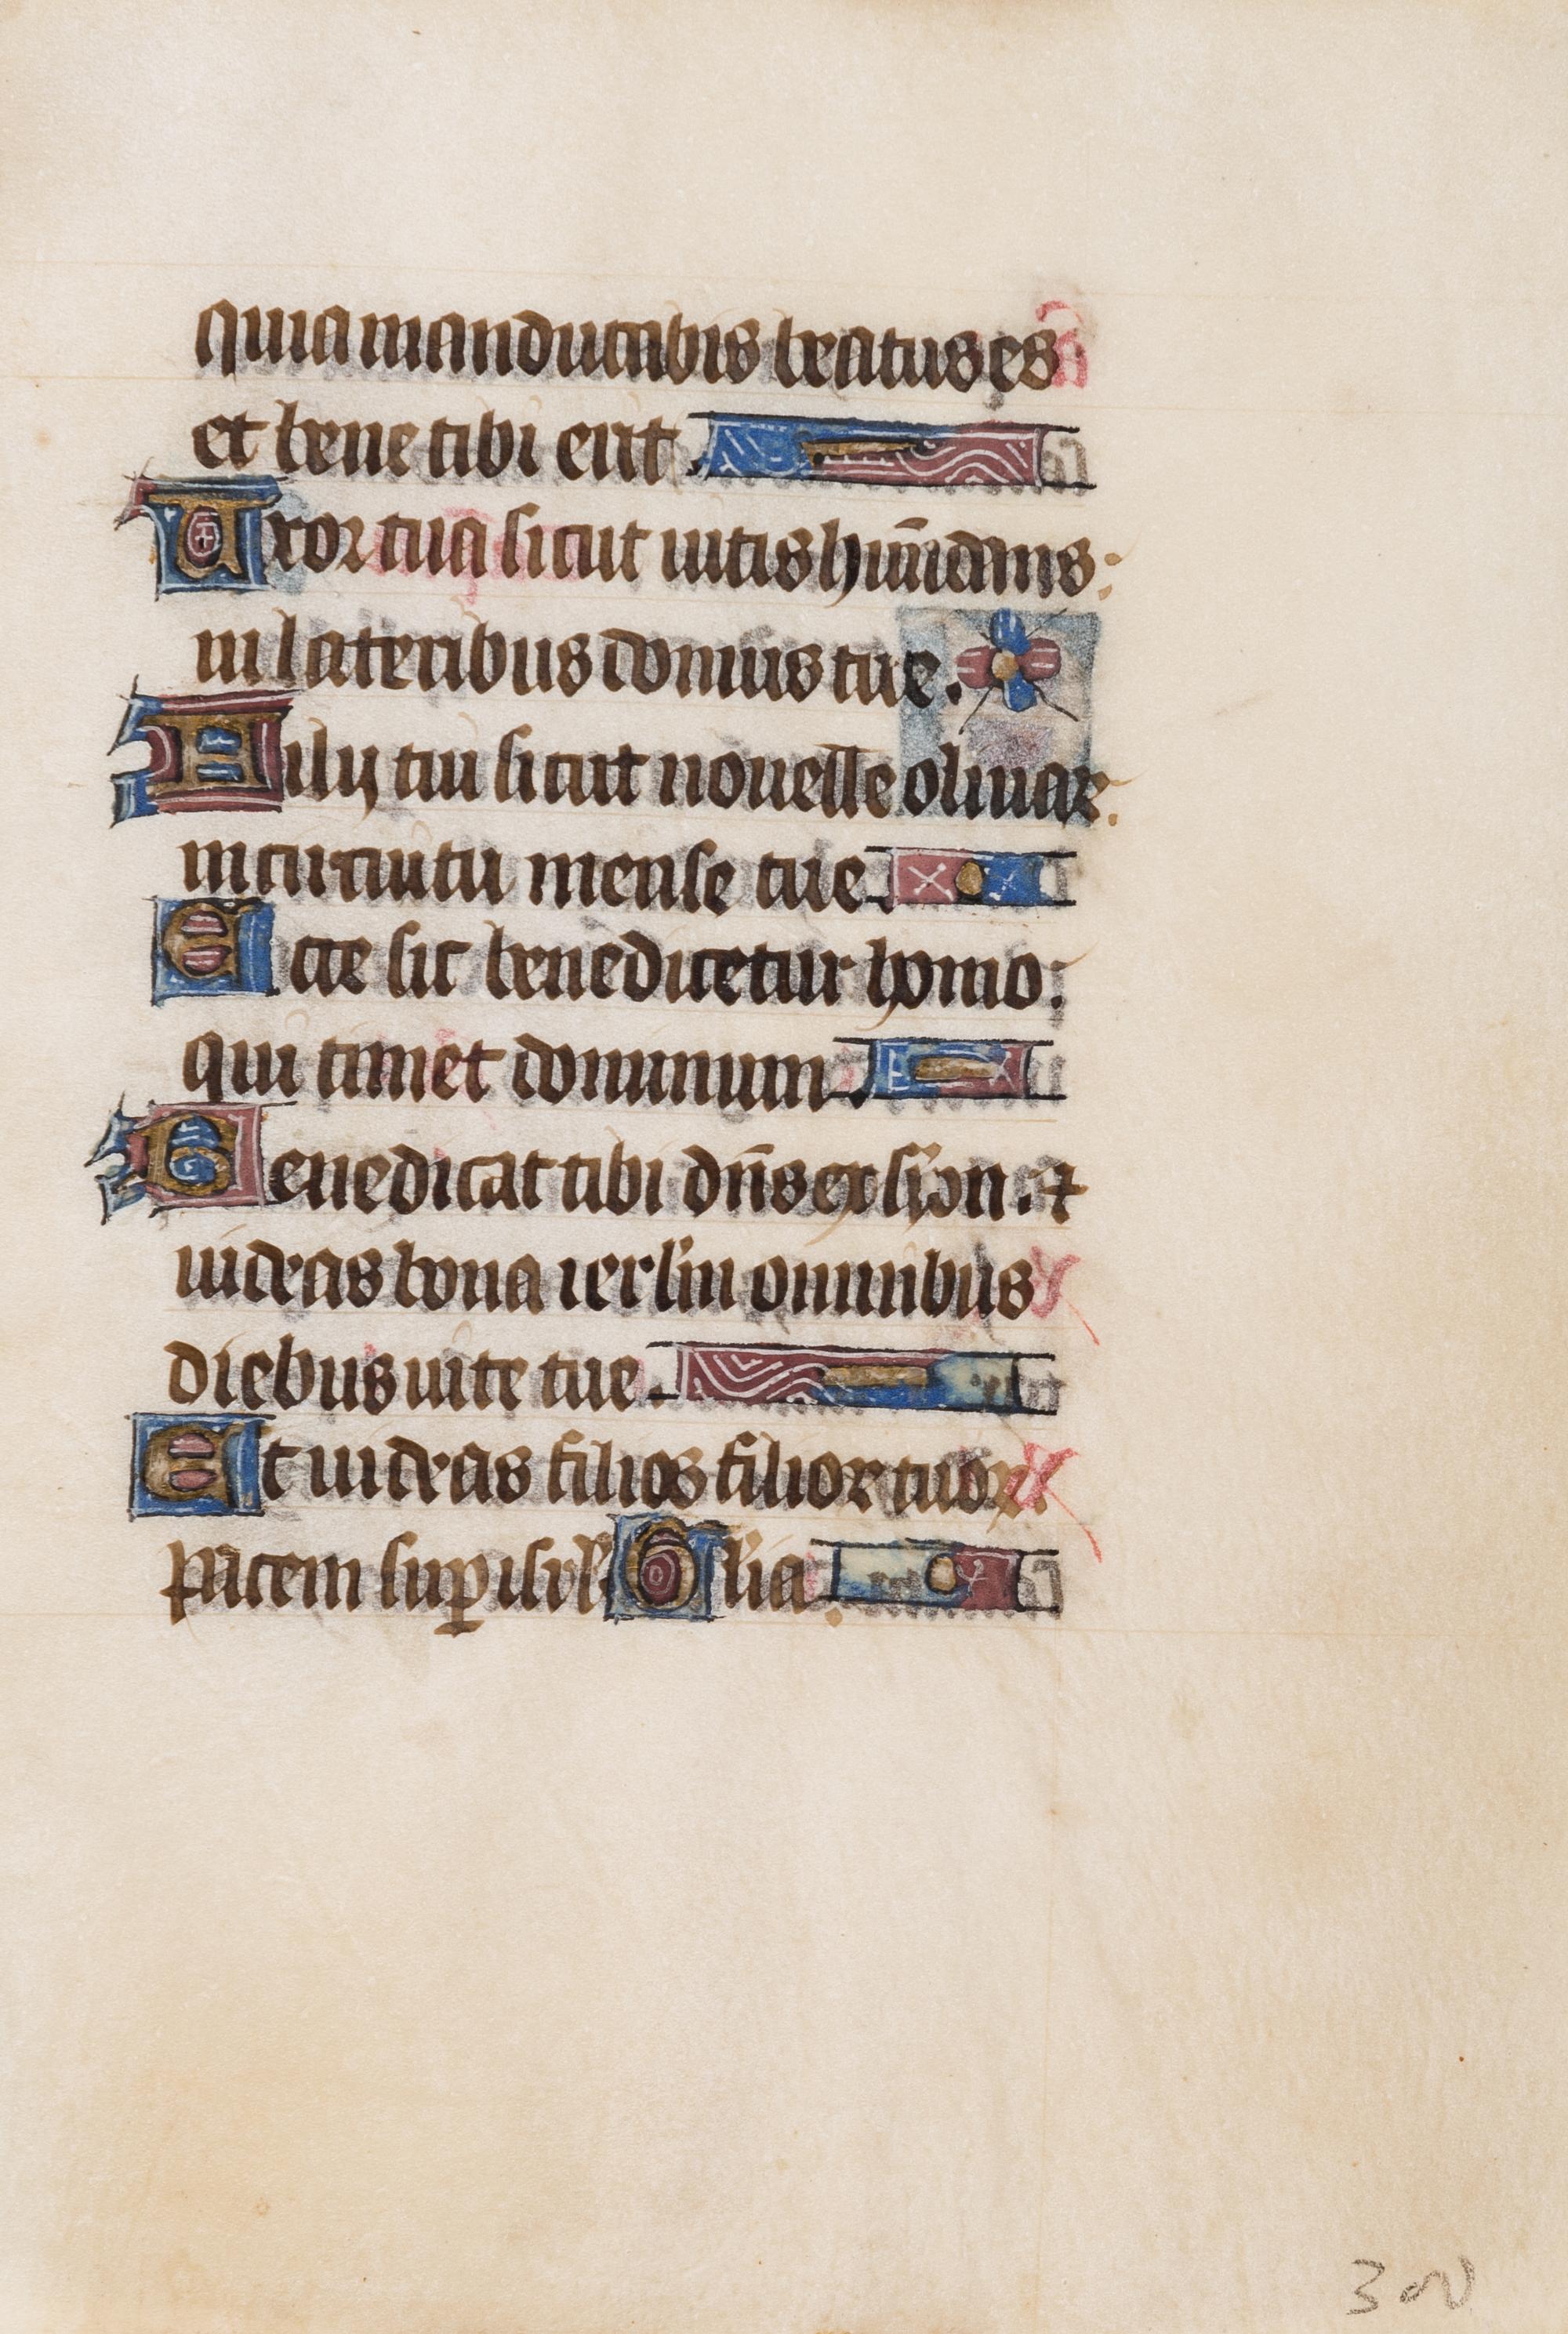 quia manducabis beatus es
et bene tibi erit.
Uxor tua sicut uitis hūndans:
in lateribus domus tue.
Filij tui sicut nouelle oliuar.
in circuitu mense tue.
Ecce sic benedicetur homo:
qui timet dominum.
Benedicat tibi dn̄s ex syon. ⁊
uideas bona ierlm omnibus
diebus uite tue.
Et uideas filios filior tuor.
pacem suꝑ isrl. Glia.